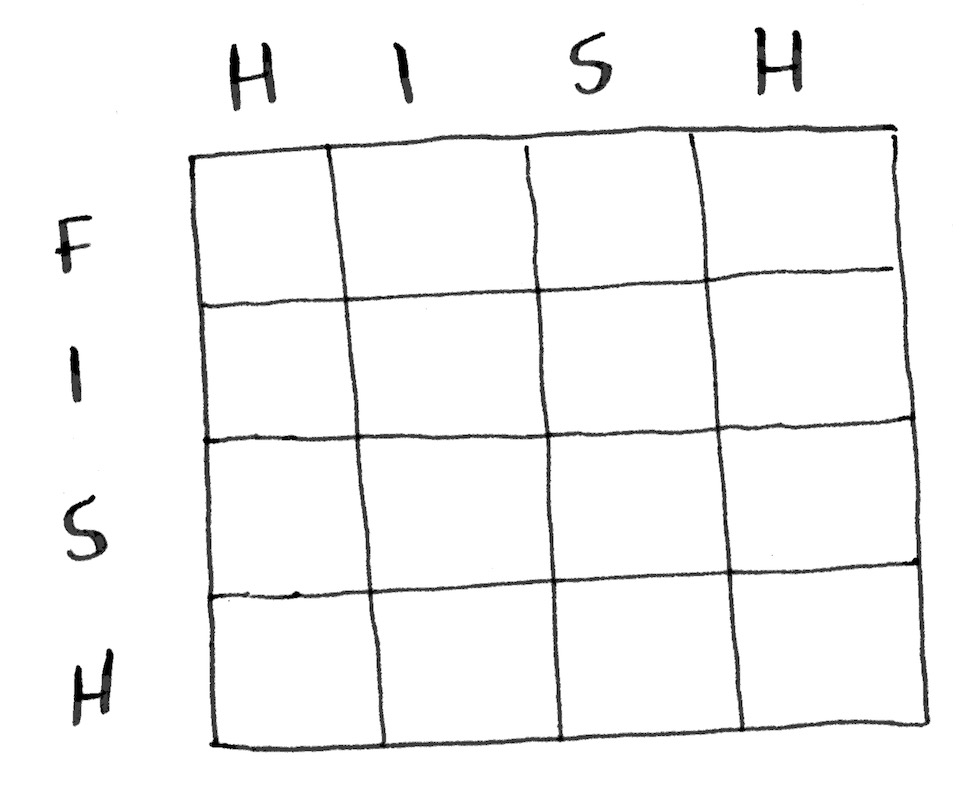 H I S H
F
I
S
H